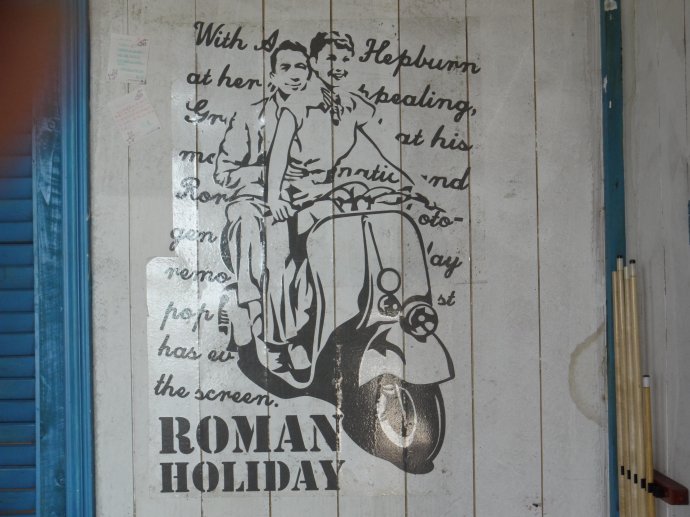 With A Hepburn
at her pealing,
Gr at his
m matic nd
Rom oto-
gen lay
remo st
pop
has ev
the screen.
ROMAN
HOLIDAY